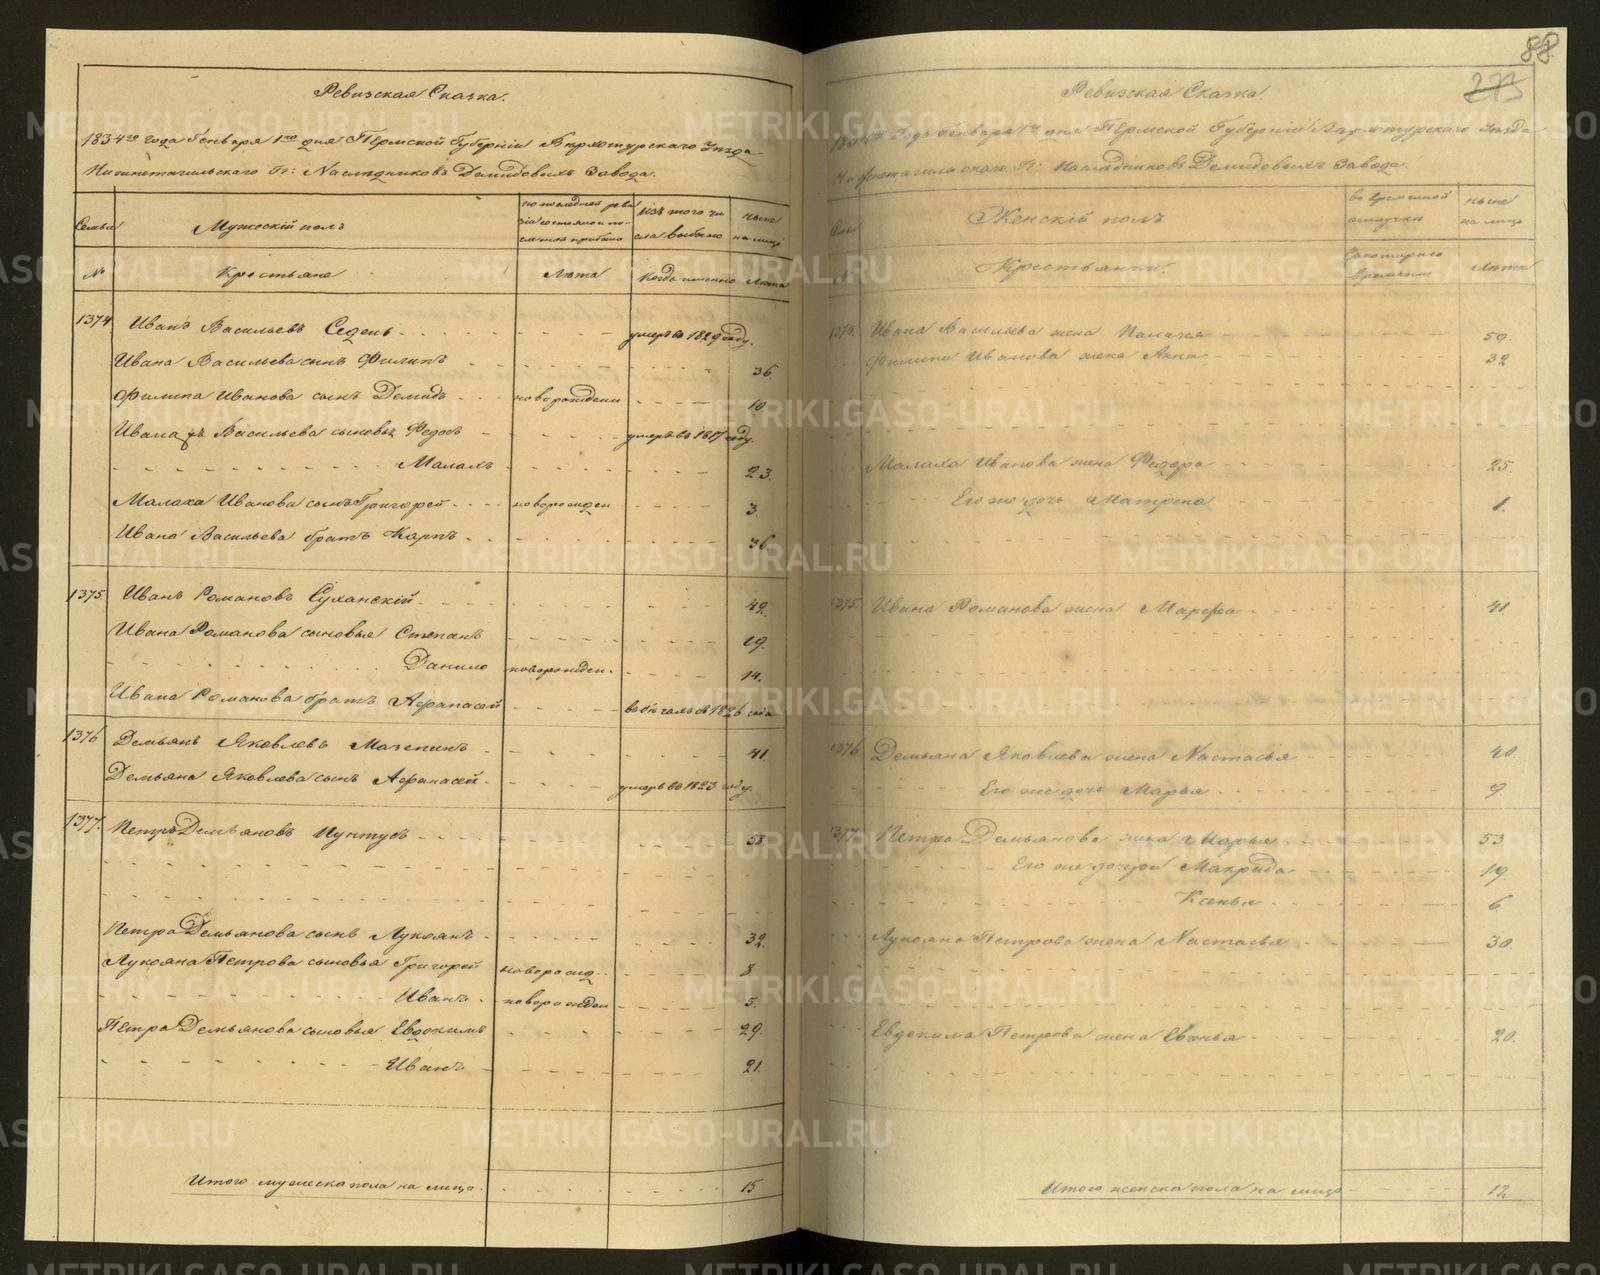 88
275
Ревизская Сказка.
1834го года Генваря 1го дня Пермской Губерніи Верхотурскаго Уезда
Нижнетагильскаго Гг: Наследниковъ Демидовыхъ Завода.
Семьи
Мужескій полъ
по последней реви
зіи состояло и по-
сле того прибыло
Изъ того чи
сла выбыло
ныне
на лицо
№
Крестьяне
Лета
Когда именно
Лета
1374 Иванъ Васильевъ Седень - - - умеръ въ 1829 году.
Ивана Васильева сынъ Филипъ - - - 36.
Филипа Иванова сынъ Демидъ - - - новорожден - - - 10
Ивана Васильева сыновья Федотъ - - - умеръ въ 1817 году.
Малахъ - - - 23.
Малаха Иванова сынъ Григорей - - - новорожден - - - 3.
Ивана Васильева братъ Карпъ - - - 36.
1375 Иванъ Романовъ Суханскій - - - 42.
Ивана Романова сыновья Степанъ - - - 19.
Данило новорожден. - - - 14.
Ивана Романова братъ Афанасей - - - 1826 года
1376 Демьянъ Яковлевъ Мазепинъ - - - 41.
Демьяна Яковлева сынъ Афанасей - - - умеръ въ 1823 году.
1377. Петръ Демьяновъ Пунтусъ - - - 58.
Петра Демьянова сынъ Лукоянъ - - - 32.
Лукояна Петрова сыновья Григорей новорожд. - - - 8.
Иванъ - новорожден - - - 5.
Петра Демьянова сыновья Евдокимъ - - - 29.
Иванъ - - - 21.
Итого мужеска пола на лицо - - - 15
Ревизская Сказка.
1834го Года Генваря 1го дня Пермской Губерніи Верхотурскаго Уезда
Нижнетагильскаго Гг: Наследниковъ Демидовыхъ Завода.
Семьи
Женскій полъ
во временной
отлучке
ныне
на лицо
Крестьянки.
Съ котораго
времени
Лета
1374. Ивана Васильева жена Палагея - - - 59.
Филипа Иванова жена Анна - - - 32
Малаха Иванова жена Федора - - - 25.
Его же дочь Матрена - - - 1.
1375 Ивана Романова жена Марфа - - - 41.
1376 Демьяна Яковлева жена Настасья - - - 40.
Его же дочь Марья - - - 9.
1377. Петра Демьянова жена Марья - - - 53.
Его же дочери Макрида - - - 19.
Ксенья - - - 6
Лукояна Петрова жена Настасья - - - 30.
Евдокима Петрова жена Евфенья - - - 20.
Итого женска пола на лицо - - - 12